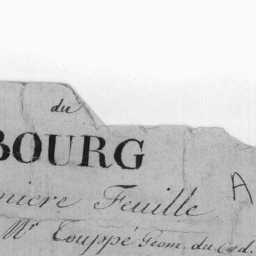 du
BOURG
niere Feuille
A
Mr Touppé Geom. du Cad.